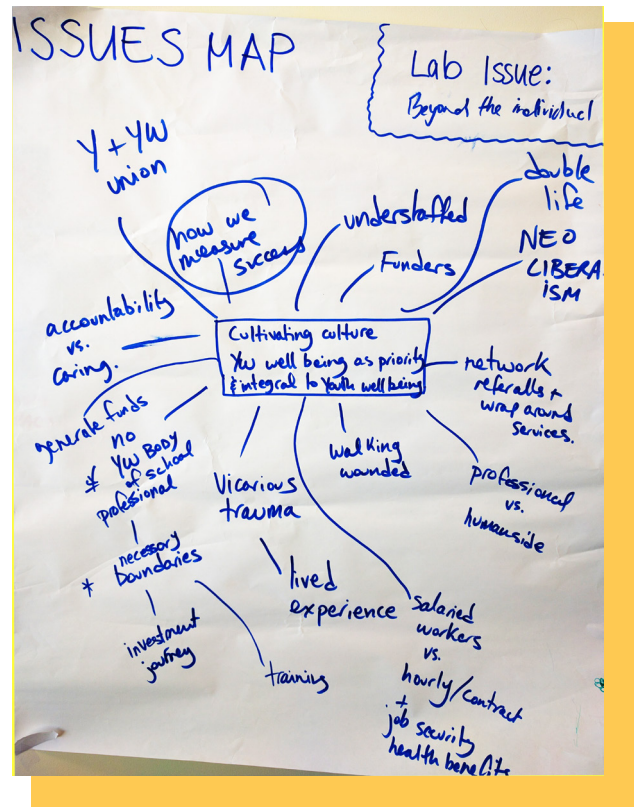 ISSUES MAP
Lab Issue:
Beyond the individual
Y + YW
union
how we
measure
success
understaffed
Funders
double
life
NEO
LIBERA
ISM
accountability
vs.
caring.
Cultivating culture
YW well being as priority
& integral to Youth well being
network
referalls +
wrap around
services.
generate funds
no
YW BODY
of school
professional
* necessary
boundaries
investment
journey
training
Vicarious
trauma
lived
experience
walking
wounded
professional
vs.
humanside
salaried
workers
vs.
hourly/contract
+
job security
health benefits